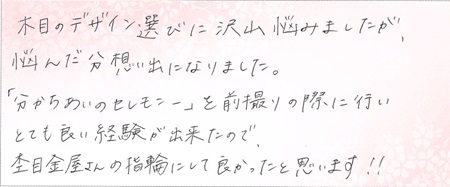 木目のデザイン選びに沢山悩みましたが、
悩んだ分想い出になりました。
「分かちあいのセレモニー」を前撮りの際に行い
とても良い経験が出来たので、
杢目金屋さんの指輪にして良かったと思います!!